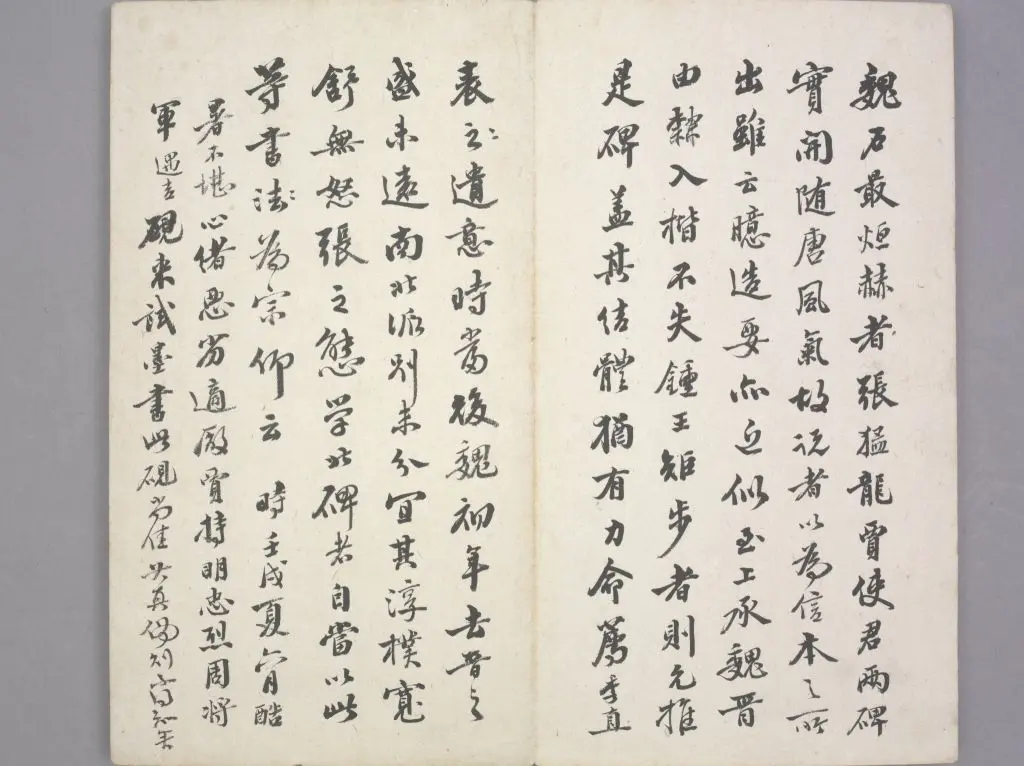 魏石最烜赫者張猛龍賈使君兩碑
實開隨唐風氣故說者以為信本之所
出雖云臆造要亦近似至上承魏晉
由隸入楷不失鍾王矩步者則允推
是碑蓋其結體猶有力命薦季直
表之遺意時當後魏初年去晉之
盛未遠南北派別未分宜其淳樸寬
舒無怒張之態学北碑者自當以此
等書法為宗仰云 時壬戌夏 酷
暑不堪心緒惡劣適廠賈持明忠烈周將
軍遇吉硯来試墨書此硯尚佳其真偽則